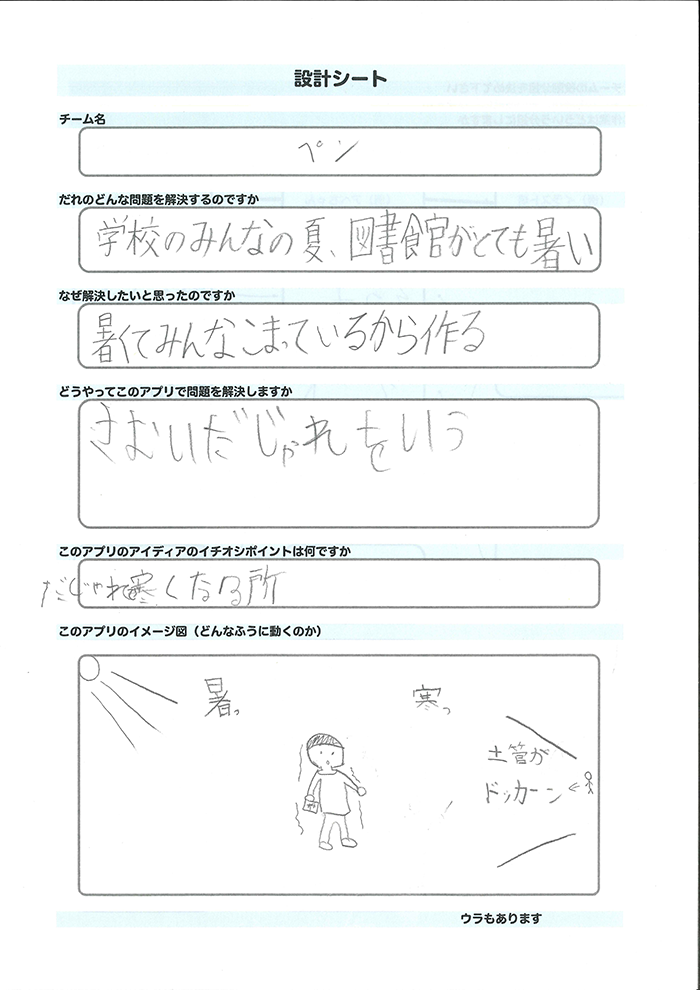 設計シート
チーム名
ペン
だれのどんな問題を解決するのですか
学校のみんなの夏、図書食官がとても暑い
なぜ解決したいと思ったのですか
暑くてみんなこまっているから作る
どうやってこのアプリで問題を解決しますか
さむいだじゃれをいう
このアプリのアイディアのイチオシポイントは何ですか
だじゃれ寒くなる所
このアプリのイメージ図（どんなふうに動くのか）
暑っ
寒っ
土管が
ドッカーン
ウラもあります